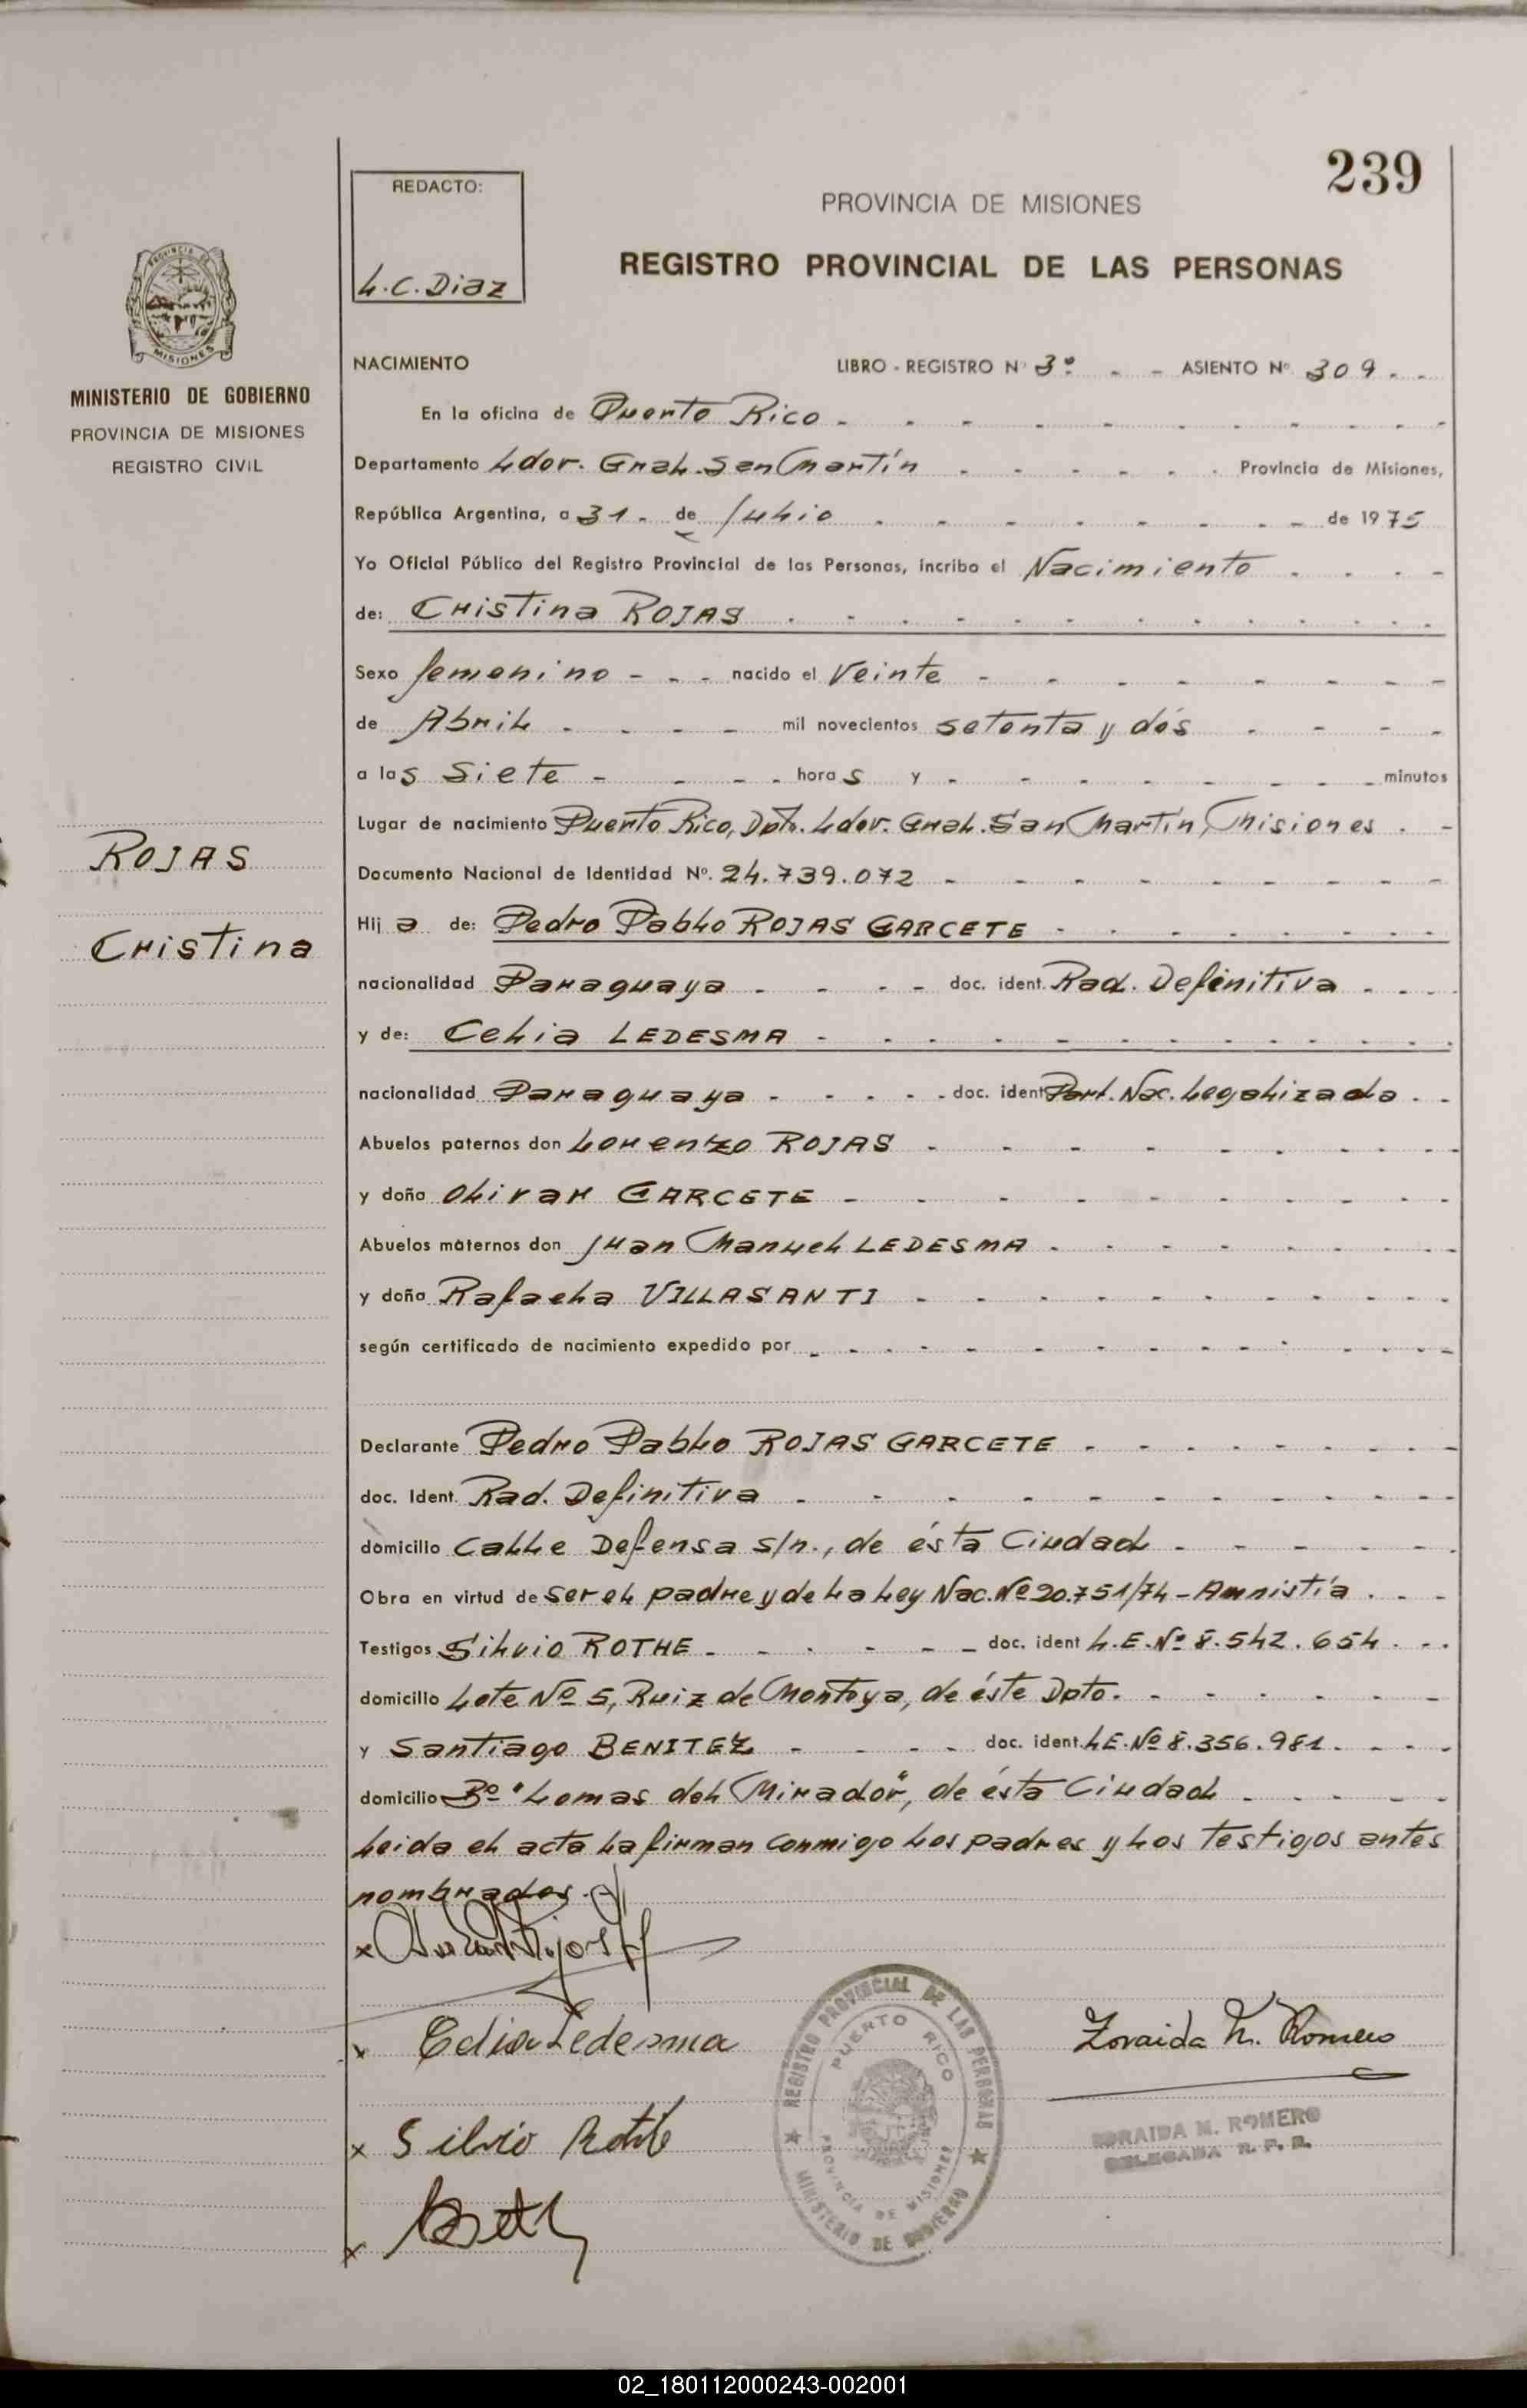 239
REDACTO:
L.C. Diaz
PROVINCIA DE MISIONES
REGISTRO PROVINCIAL DE LAS PERSONAS
PROVINCIA DE
MISIONES
MINISTERIO DE GOBIERNO
PROVINCIA DE MISIONES
REGISTRO CIVIL
NACIMIENTO LIBRO - REGISTRO Nº 3º - - ASIENTO Nº 309 - -
En la oficina de Puerto Rico
Departamento Ldor. Gral. San Martín Provincia de Misiones,
República Argentina, a 31 - de Julio de 1975
Yo Oficial Público del Registro Provincial de las Personas, incribo el Nacimiento
de: Cristina ROJAS
Sexo femenino - - - nacido el Veinte
de Abril mil novecientos setenta y dós
a las Siete - horas y - minutos
Lugar de nacimiento Puerto Rico, Dpto. Ldor. Gral. San Martín, Misiones
Documento Nacional de Identidad Nº. 24.739.072
ROJAS
Cristina
Hij a de: Pedro Pablo ROJAS GARCETE
nacionalidad Paraguaya doc. ident. Rad. Definitiva
y de: Celia LEDESMA
nacionalidad Paraguaya doc. ident Part. Nac. Legalizada
Abuelos paternos don Lorenzo ROJAS
y doña Olivar GARCETE
Abuelos maternos don Juan Manuel LEDESMA
y doña Rafaela VILLASANTI
según certificado de nacimiento expedido por
Declarante Pedro Pablo ROJAS GARCETE
doc. Ident. Rad. Definitiva
domicilio Calle Defensa s/n., de ésta Ciudad
Obra en virtud de ser el padre y de la Ley Nac. Nº 20.751/74 - Amnistía
Testigos Silvio ROTHE doc. ident L.E. Nº 8.542.654
domicilio Lote Nº 5, Ruiz de Montoya, de éste Dpto.
y Santiago BENITEZ doc. ident. L.E. Nº 8.356.981
domicilio Bº "Lomas del Mirador", de ésta Ciudad
Leida el acta la firman conmigo los padres y los testigos antes
nombrados.-
x
x Celia Ledesma
Zoraida M. Romero
x Silvio Rothe
ZORAIDA M. ROMERO
DELEGADA R. P. P.
x
REGISTRO PROVINCIAL DE LAS PERSONAS
PUERTO RICO
PROVINCIA DE MISIONES
MINISTERIO DE GOBIERNO
02_180112000243-002001